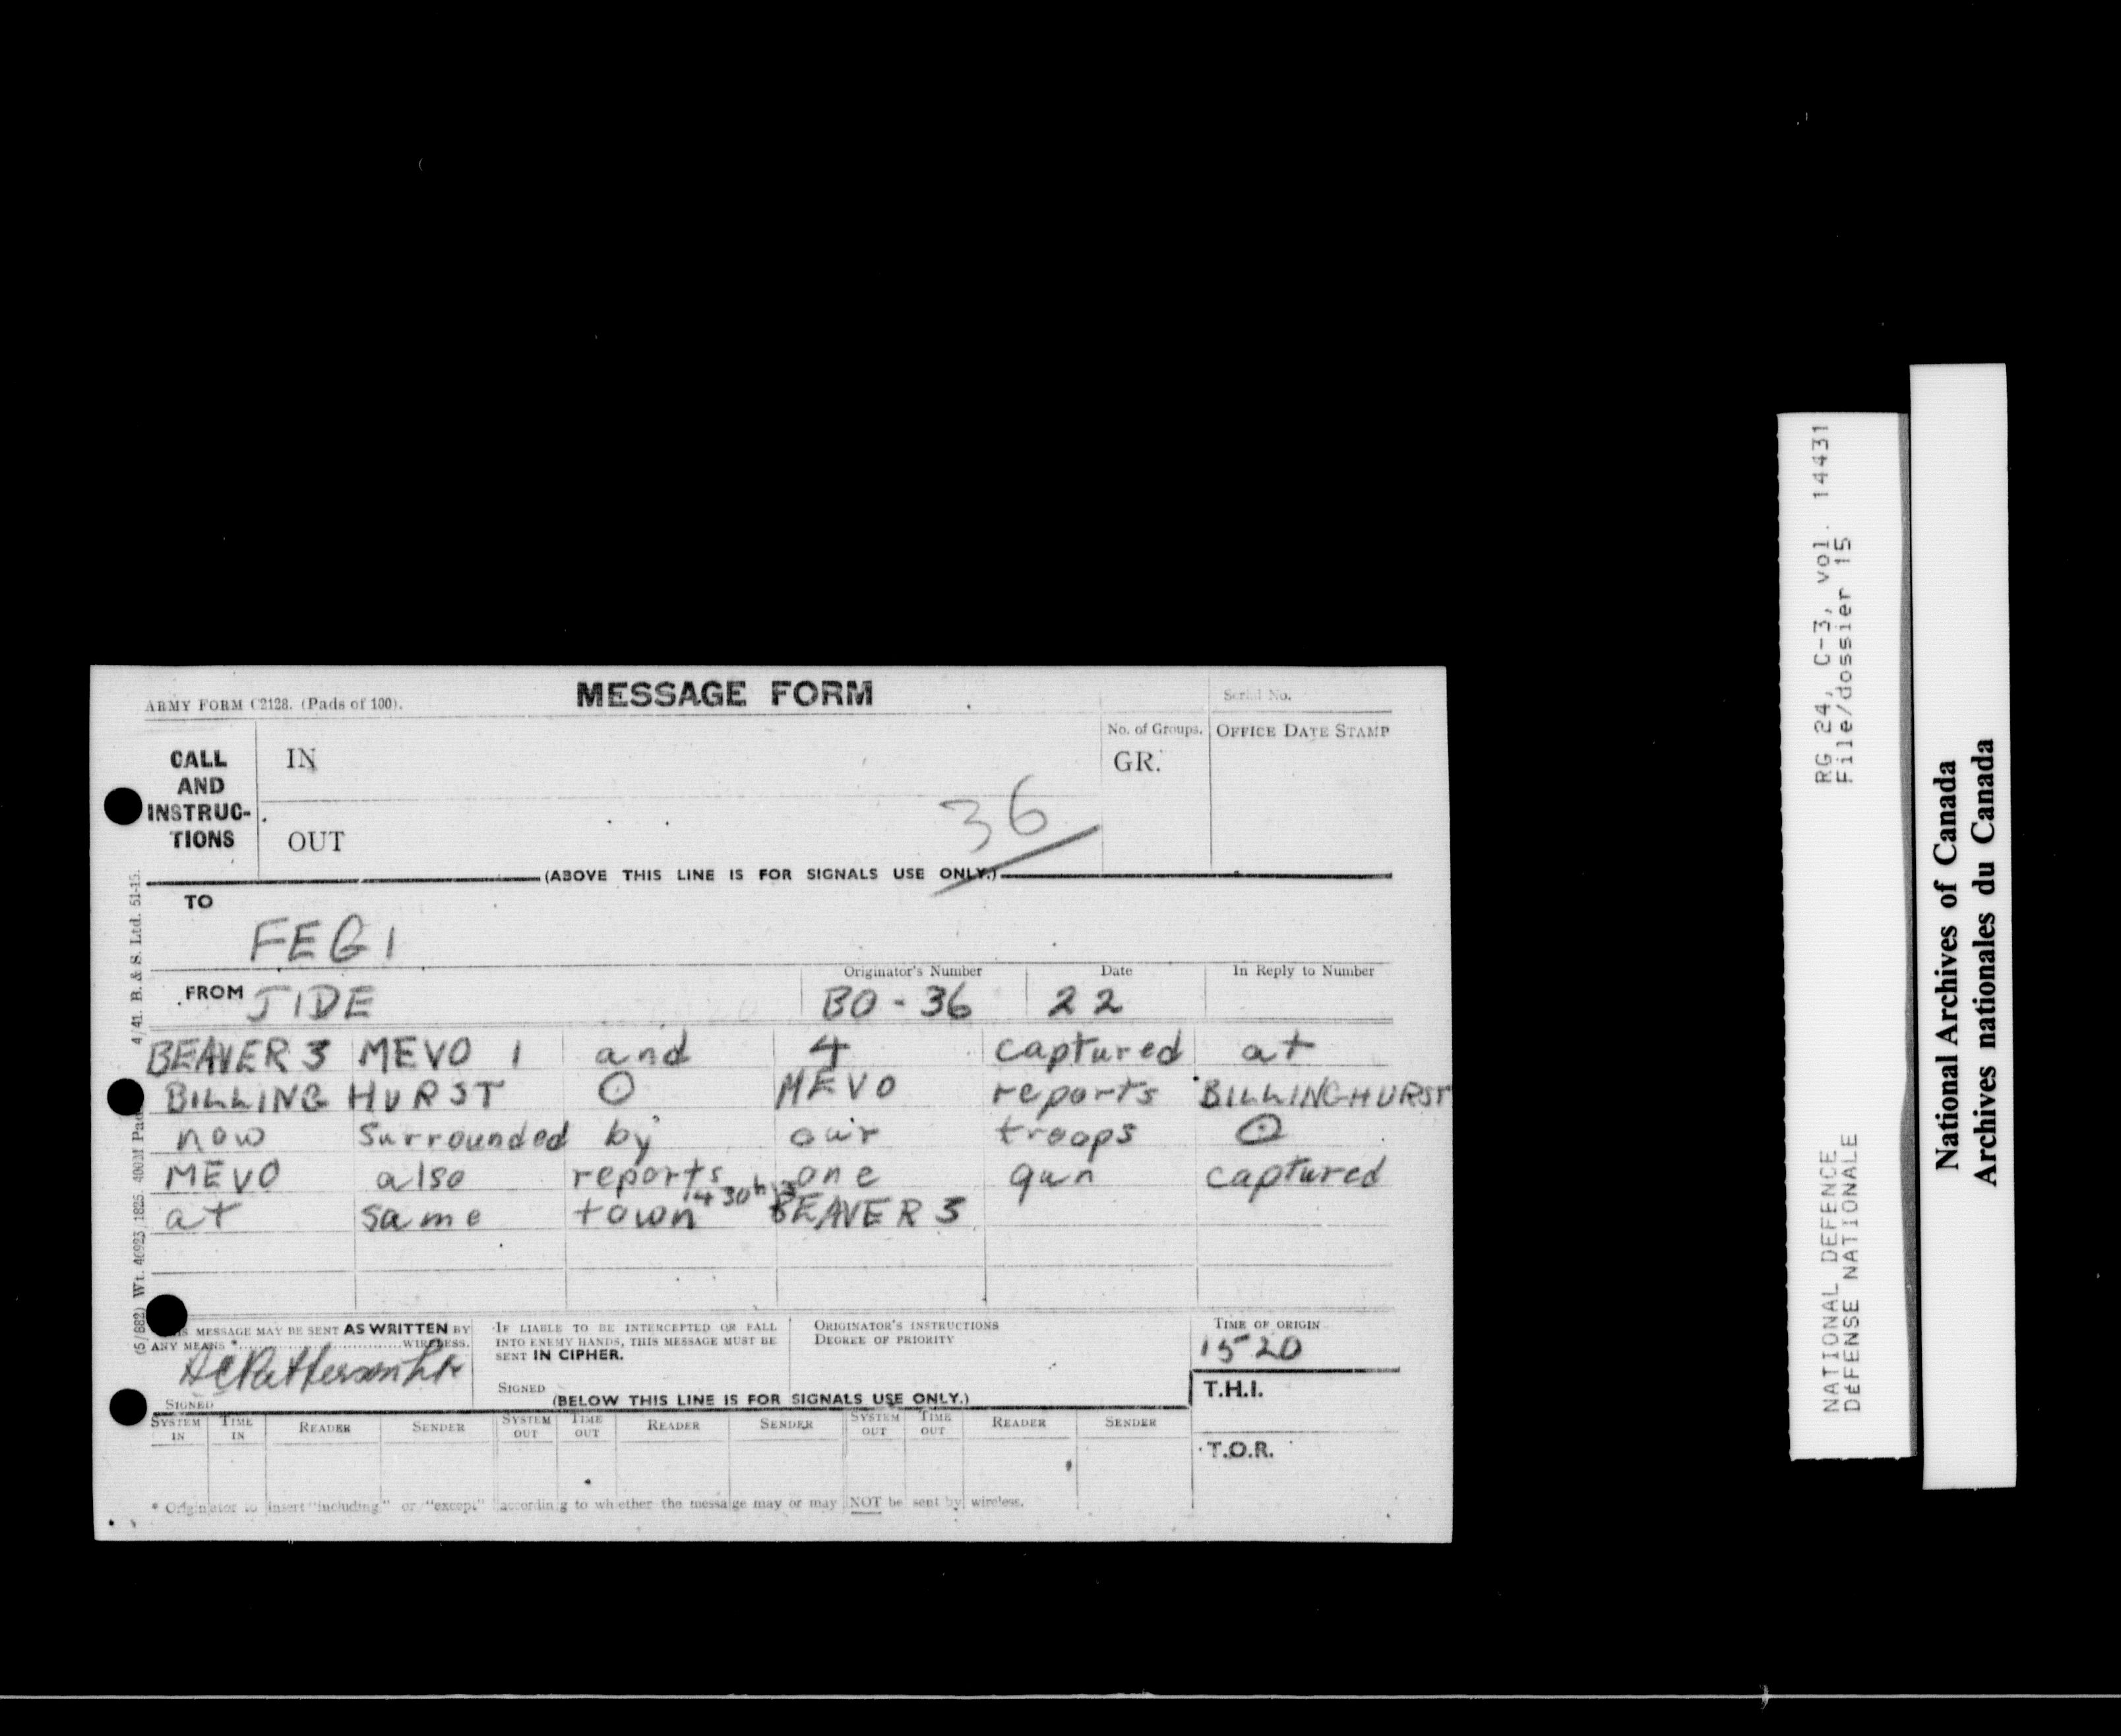 ARMY FORM C2128. (Pads of 100).
MESSAGE FORM
Serial No.
CALL AND INSTRUC-TIONS
IN
No. of Groups.
GR.
OFFICE DATE STAMP
OUT
36
(ABOVE THIS LINE IS FOR SIGNALS USE ONLY.)
TO
FEG1
FROM JIDE
Originator's Number
BO - 36
Date
22
In Reply to Number
BEAVER 3 MEVO 1 and 4 captured at
BILLING HURST ⊙ MEVO reports BILLINGHURST
now surrounded by our troops ⊙
MEVO also reports one gun captured
1430hrs
at same town BEAVER 3
(5/882) Wt. 46923/1825. 400M Pads 4/41. B. & S. Ltd. 51-15.
THIS MESSAGE MAY BE SENT AS WRITTEN BY
ANY MEANS *..............................WIRELESS.
SIGNED
IF LIABLE TO BE INTERCEPTED OR FALL
INTO ENEMY HANDS, THIS MESSAGE MUST BE
SENT IN CIPHER.
SIGNED
ORIGINATOR'S INSTRUCTIONS
DEGREE OF PRIORITY
TIME OF ORIGIN
1520
T.H.I.
T.O.R.
(BELOW THIS LINE IS FOR SIGNALS USE ONLY.)
SYSTEM IN TIME IN READER SENDER SYSTEM OUT TIME OUT READER SENDER SYSTEM OUT TIME OUT READER SENDER
* Originator to insert "including" or "except" according to whether the message may or may NOT be sent by wireless.
RG 24, C-3, vol. 14431
File/dossier 15
NATIONAL DEFENCE
DÉFENSE NATIONALE
National Archives of Canada
Archives nationales du Canada